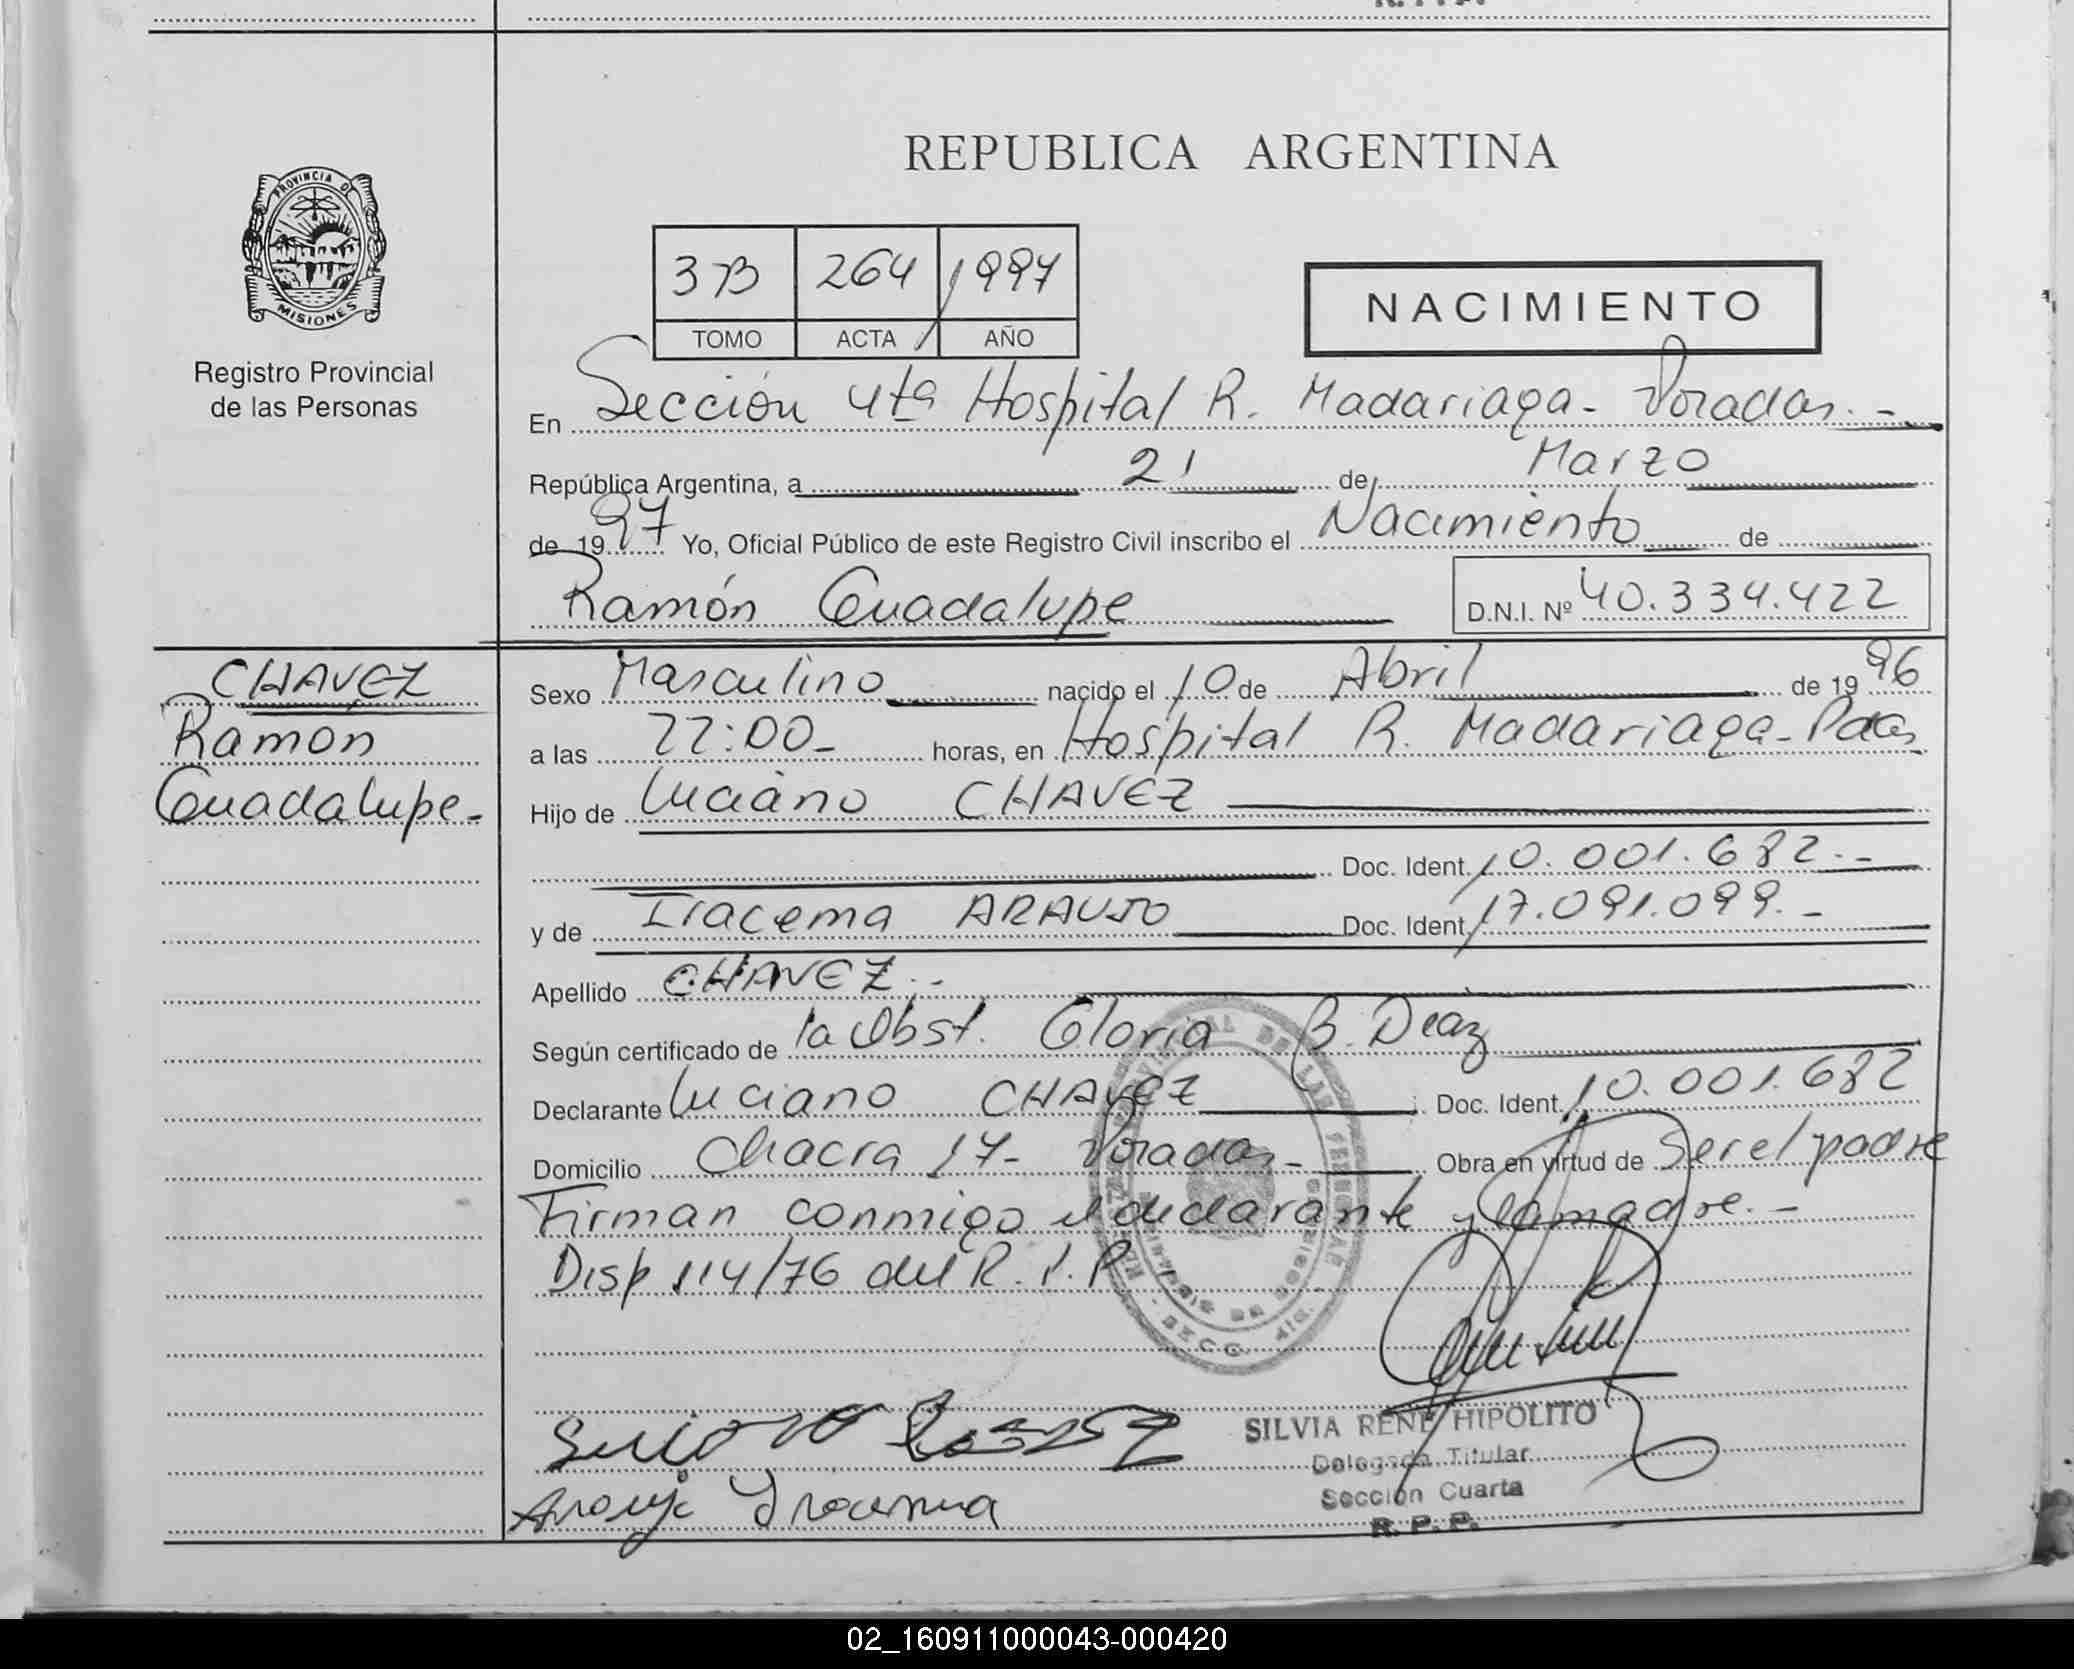 REPUBLICA ARGENTINA
PROVINCIA DE
MISIONES
Registro Provincial
de las Personas
3B 264 1997
TOMO ACTA AÑO
NACIMIENTO
En Sección 4ta Hospital R. Madariaga- Posadas.-
República Argentina, a 21 de Marzo
de 1997 Yo, Oficial Público de este Registro Civil inscribo el Nacimiento de
Ramón Guadalupe D.N.I. Nº 40.334.422
CHAVEZ
Ramon
Guadalupe-
Sexo Masculino nacido el 10 de Abril de 1996
a las 22:00- horas, en Hospital R. Madariaga- Pdas
Hijo de Luciano CHAVEZ
Doc. Ident. 10.001.682.-
y de Iracema ARAUJO Doc. Ident. 17.091.099.-
Apellido CHAVEZ.-
Según certificado de la Obst. Gloria B. Diaz
Declarante Luciano CHAVEZ Doc. Ident. 10.001.682
Domicilio Chacra 17- Posadas- Obra en virtud de Ser el padre
Firman conmigo el declarante y la madre.-
Disp 114/76 del R.P.P.
SILVIA RENE HIPOLITO
Delegada Titular
Sección Cuarta
R. P. P.
Araujo Iracema
02_160911000043-000420